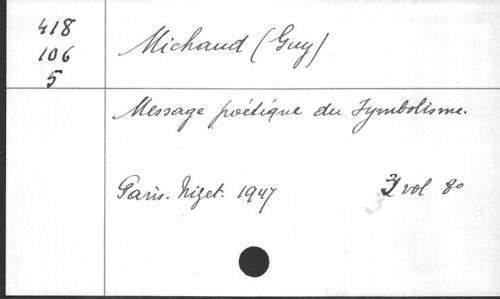 418
106
5
Michaud (Guy)
Message poétique du Symbolisme.
Paris. Nizet. 1947
3 vol 8°